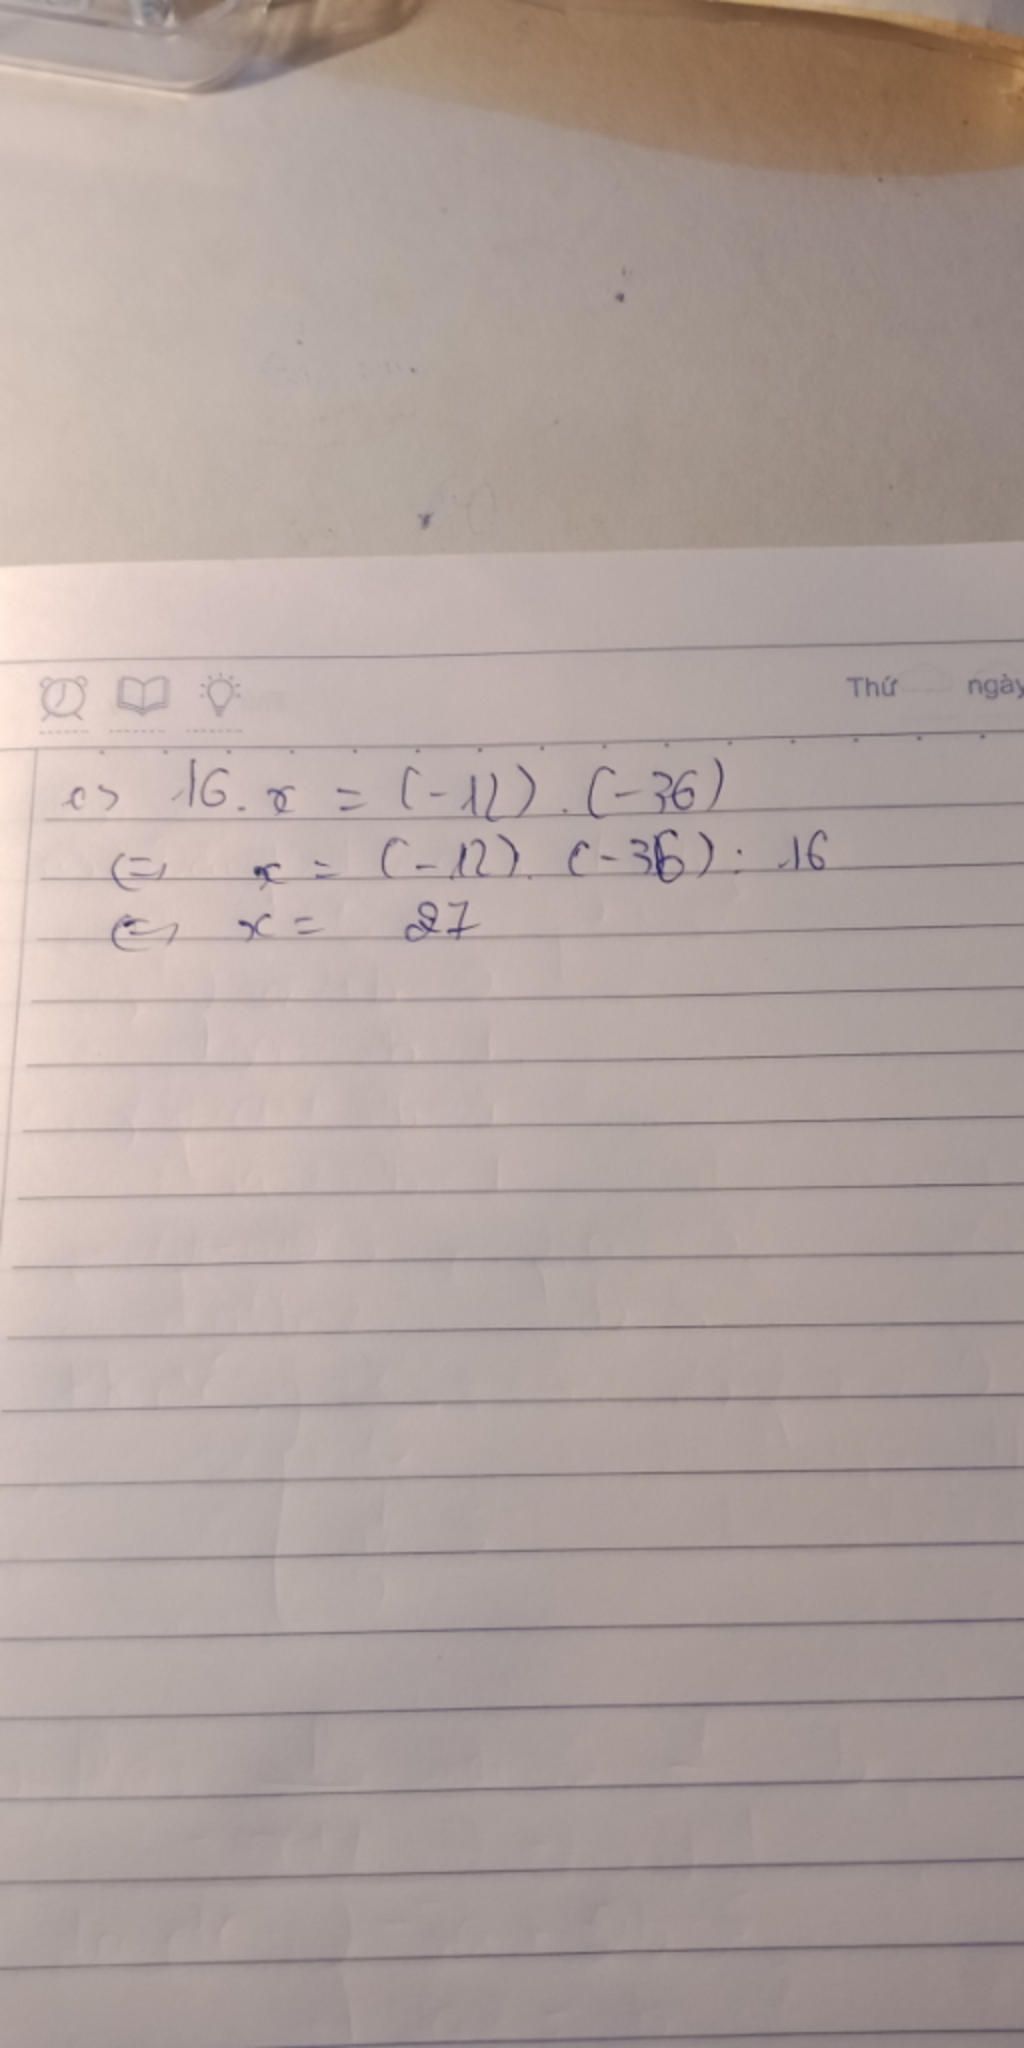 Thứ ngày
c> 16. x = (-12) . (-36)
⇔ x = (-12) . (-36) : 16
⇔ x = 27